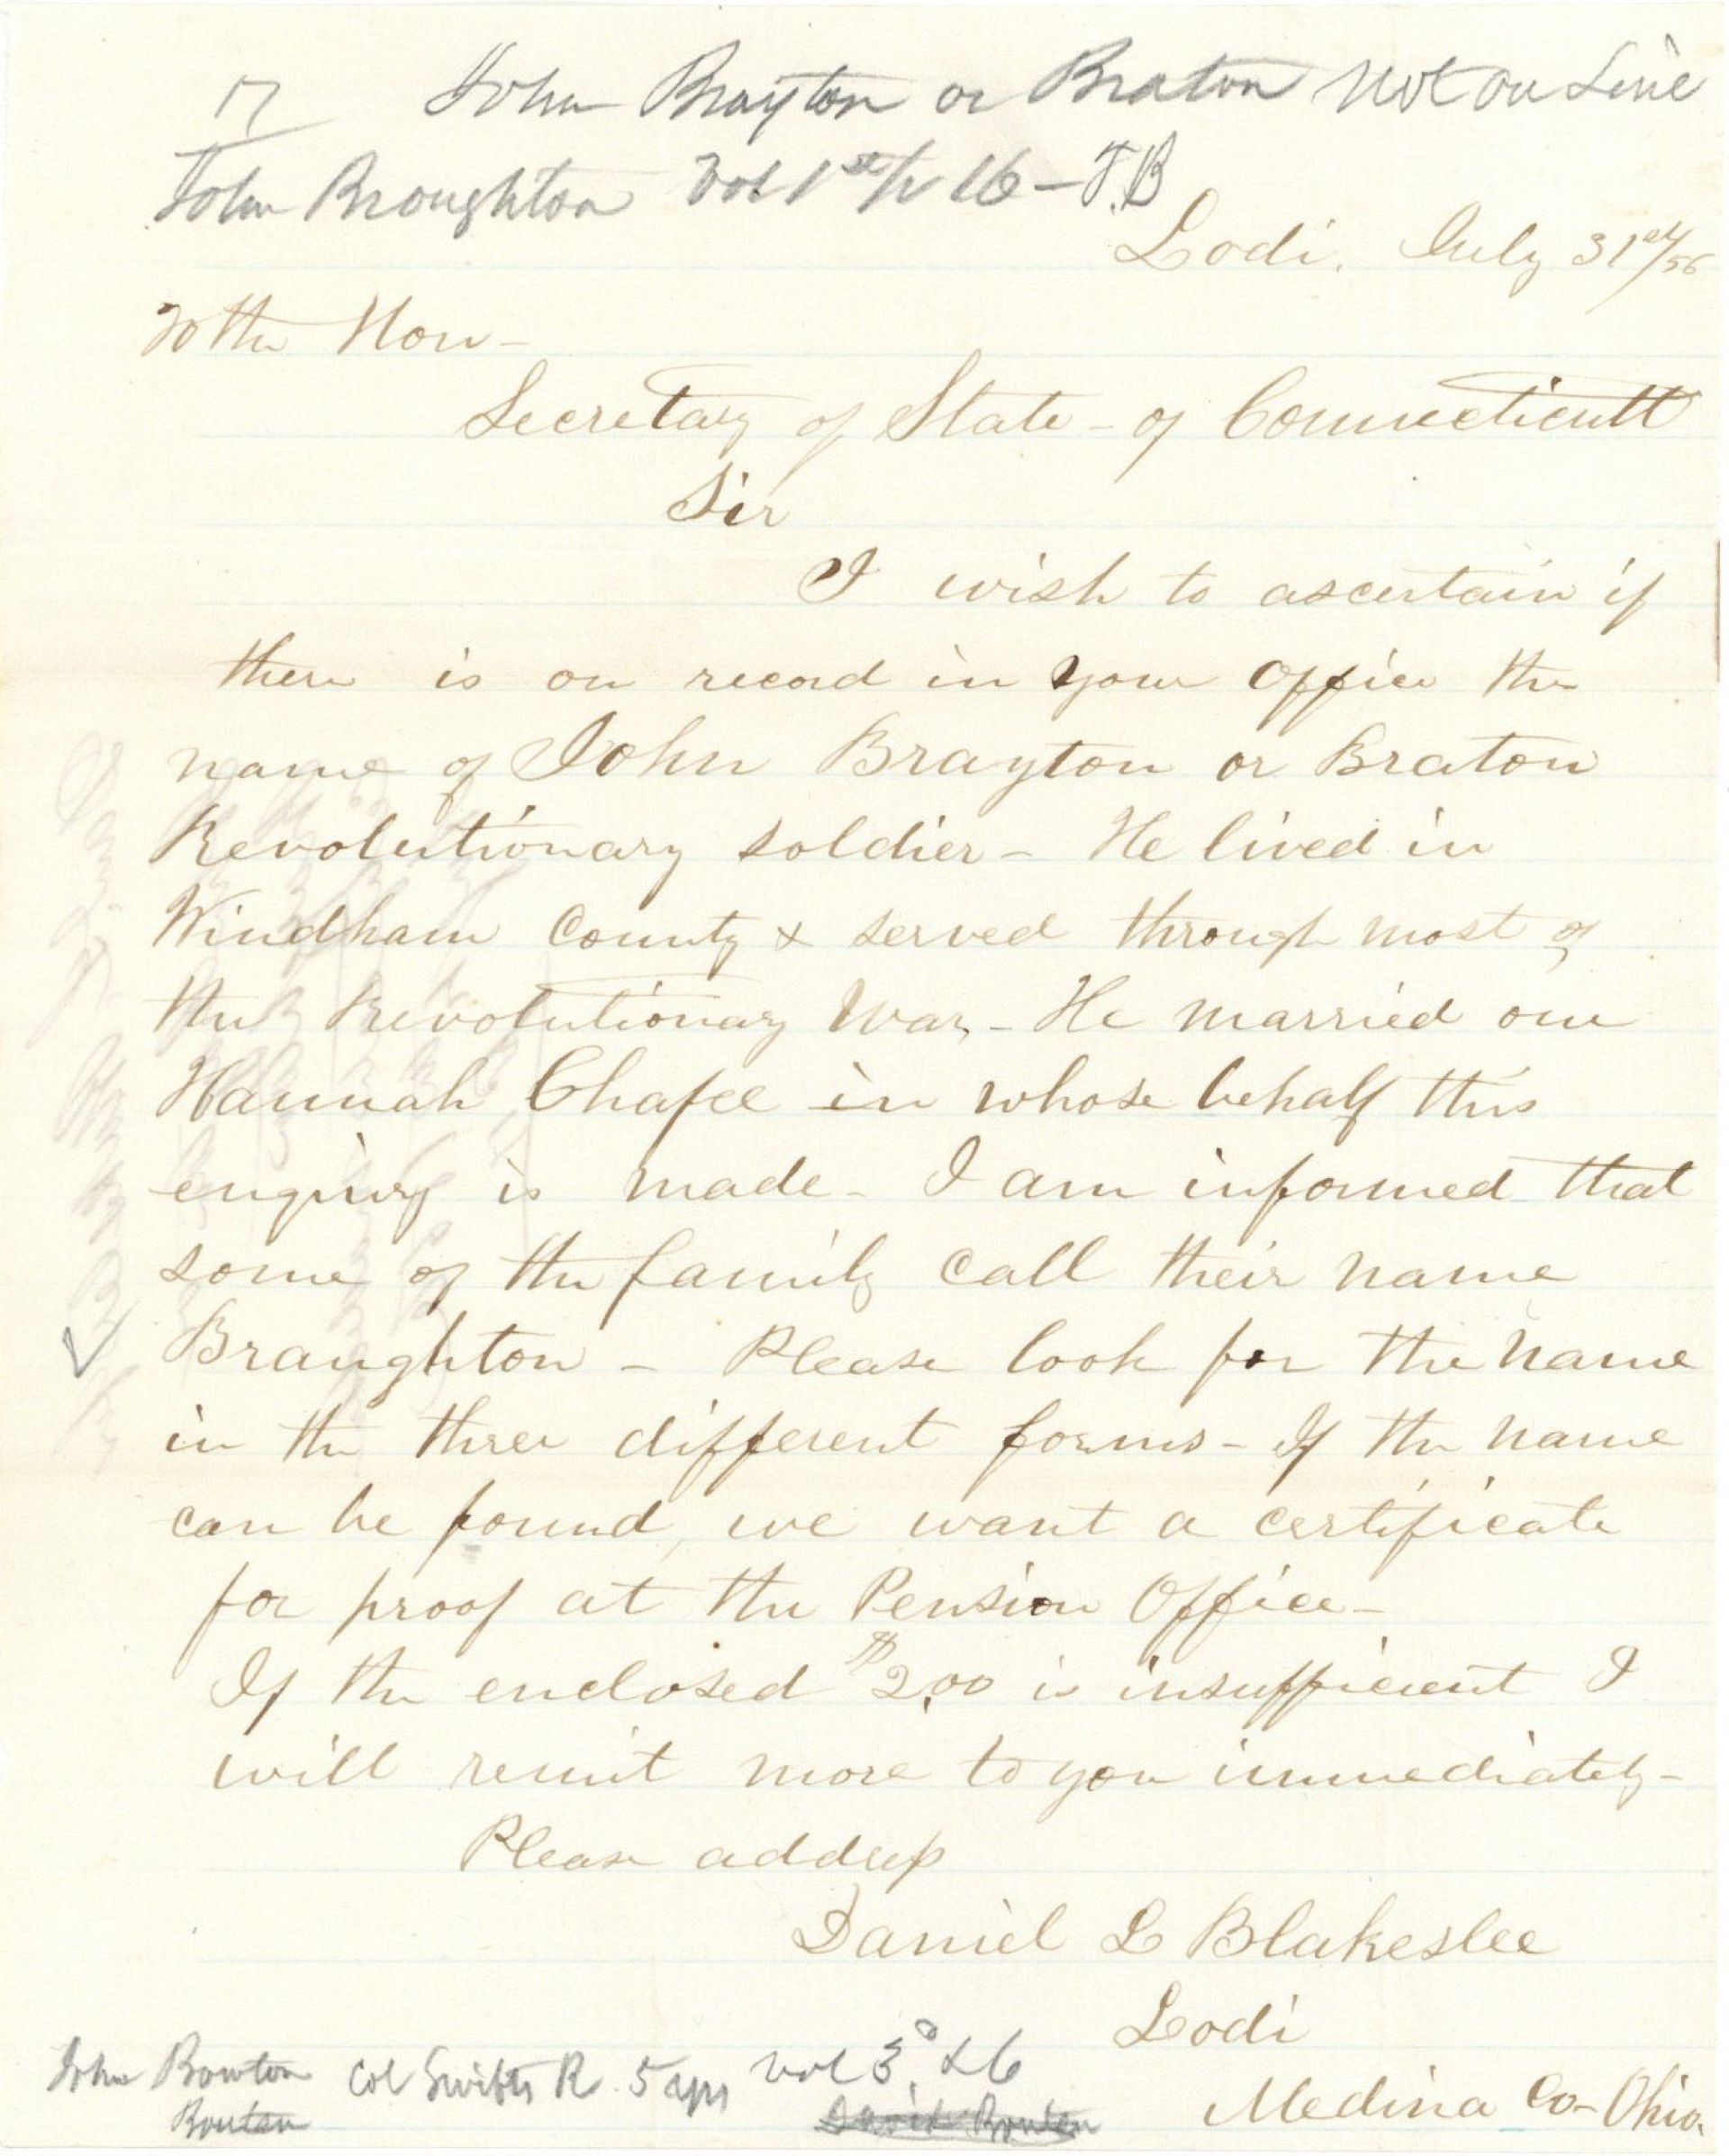 17 John Brayton or Braton Not on Line
John Broughton Vol 1st p 16 - J.B
Lodi. July 31st/56
To the Hon-
Secretary of State - of Connecticutt
Sir
I wish to ascertain if
there is on record in your Office the
name of John Brayton or Braton
Revolutionary soldier - He lived in
Windham County & served through most of
the Revolutionary War, - He married one
Hannah Chafee in whose behalf this
enquiry is made - I am informed that
some of the family call their name
Braughton - Please look for the name
in the three different forms - If the name
can be found, we want a certificate
for proof at the Pension Office -
If the enclosed $2,00 is insufficient I
will remit more to you immediately -
Please address
Daniel L Blakeslee
Lodi
Medina Co - Ohio.
John Bowton Col Swifts R. 5 vol 3d 26
Bouton
David Bouton